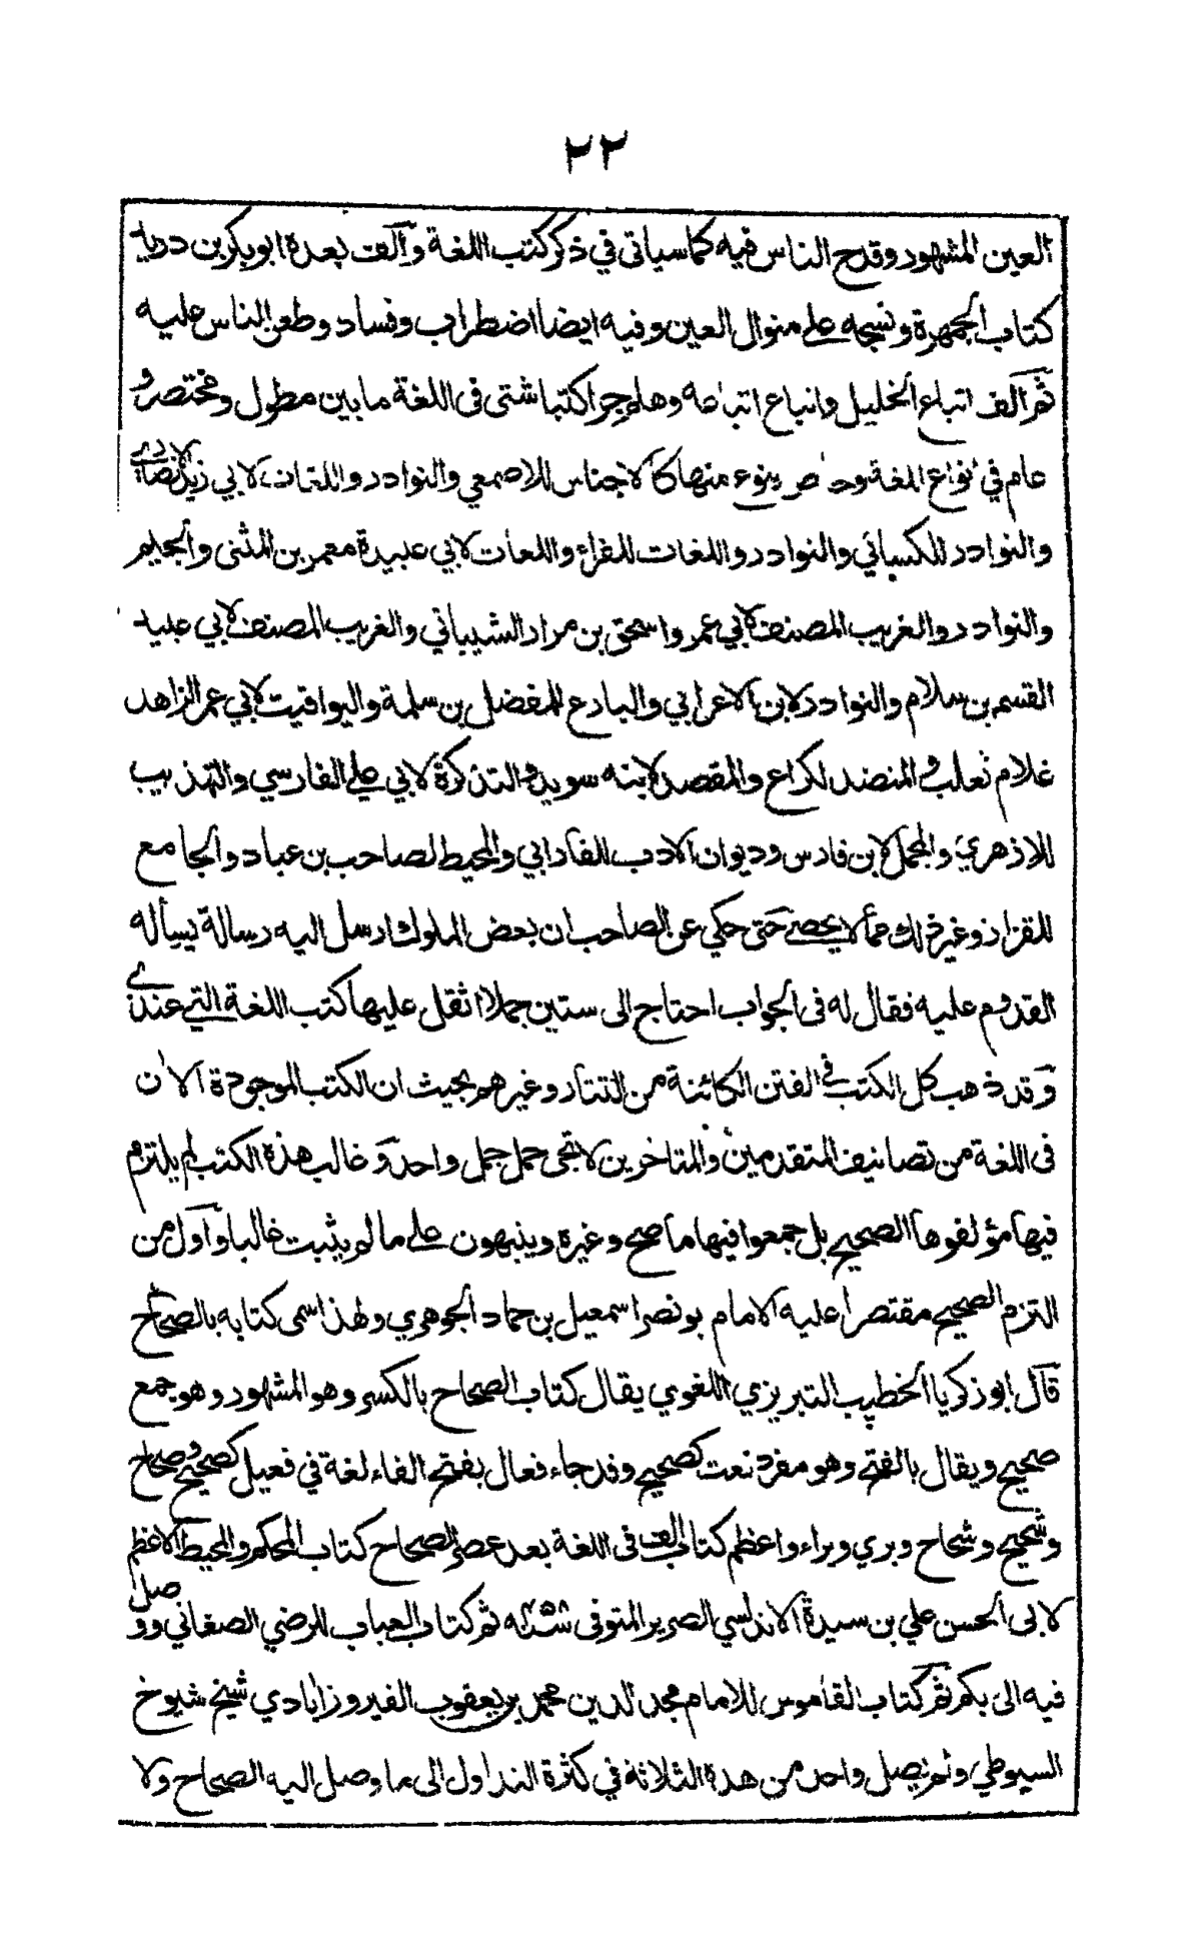 ٢٢
العين المشهور وقدح الناس فيه كما سياتى في ذكر كتب اللغة وآلف بعده ابوبكر بن دريد
كتاب الجمهرة ونسجه على منوال العين وفيه ايضا اضطراب وفساد وطعن الناس عليه
ثم آلف اتباع الخليل واتباع اتباعه وهلم جرا كتبا شتى فى اللغة ما بين مطول ومختصر و
عام في انواع اللغة وخاص بنوع منها كالاجناس للاصمعي والنوادر واللغات لابي زيد الانصاري
والنوادر للكسائي والنوادر واللغات للفراء واللغات لابي عبيدة معمر بن المثنى والجيم
والنوادر والغريب المصنف لابي عمرو اسحق بن مراد الشيباني والغريب المصنف لابي عبيد
القسم بن سلام والنوادر لابن الاعرابي والبارع للمفضل بن سلمة واليواقيت لابي عمر الزاهد
غلام ثعلب و المنضد لكراع والمقصد لابنه سويد و التذكرة لابي علي الفارسي والتهذيب
للازهري والمجمل لابن فارس وديوان الادب للفارابي والمحيط لصاحب بن عباد والجامع
للقزاز وغير ذلك مما لا يحصى حتى حكي عن الصاحب ان بعض الملوك ارسل اليه رسالة يسأله
القدوم عليه فقال له فى الجواب احتاج الى ستين جملا اثقل عليها كتب اللغة التي عندي
وقد ذهب كل الكتب في الفتن الكائنة من التتار وغيرهم بحيث ان الكتب الموجودة الآن
فى اللغة من تصانيف المتقدمين والمتاخرين لا تجى حمل جمل واحد و غالب هذه الكتب لم يلتزم
فيها مؤلفوها الصحيح بل جمعوا فيها ما صح وغيره وينبهون على ما لم يثبت غالبا وآول من
التزم الصحيح مقتصرا عليه الامام بو نصر اسمعيل بن حماد الجوهري ولهذا سمى كتابه بالصحاح
قال ابو زكريا الخطيب التبريزي اللغوي يقال كتاب الصحاح بالكسر وهو المشهور وهو جمع
صحيح ويقال بالفتح وهو مفرد نعت كصحيح وقد جاء فعال بفتح الفاء لغة في فعيل كصحيح وصحاح
وشحيح وشحاح وبري وبراء واعظم كتاب الف فى اللغة بعد عصر الصحاح كتاب المحكم والمحيط الاعظم
لابى الحسن علي بن سيدة الاندلسي الضرير المتوفى سنة ٤٥٨ه ثم كتاب العباب للرضي الصغاني ووصل
فيه الى بكم ثم كتاب القاموس للامام مجد الدين محمد بن يعقوب الفيروزابادي شيخ شيوخ
السيوطي ولم يصل واحد من هذه الثلاثة في كثرة التداول الى ما وصل اليه الصحاح ولا